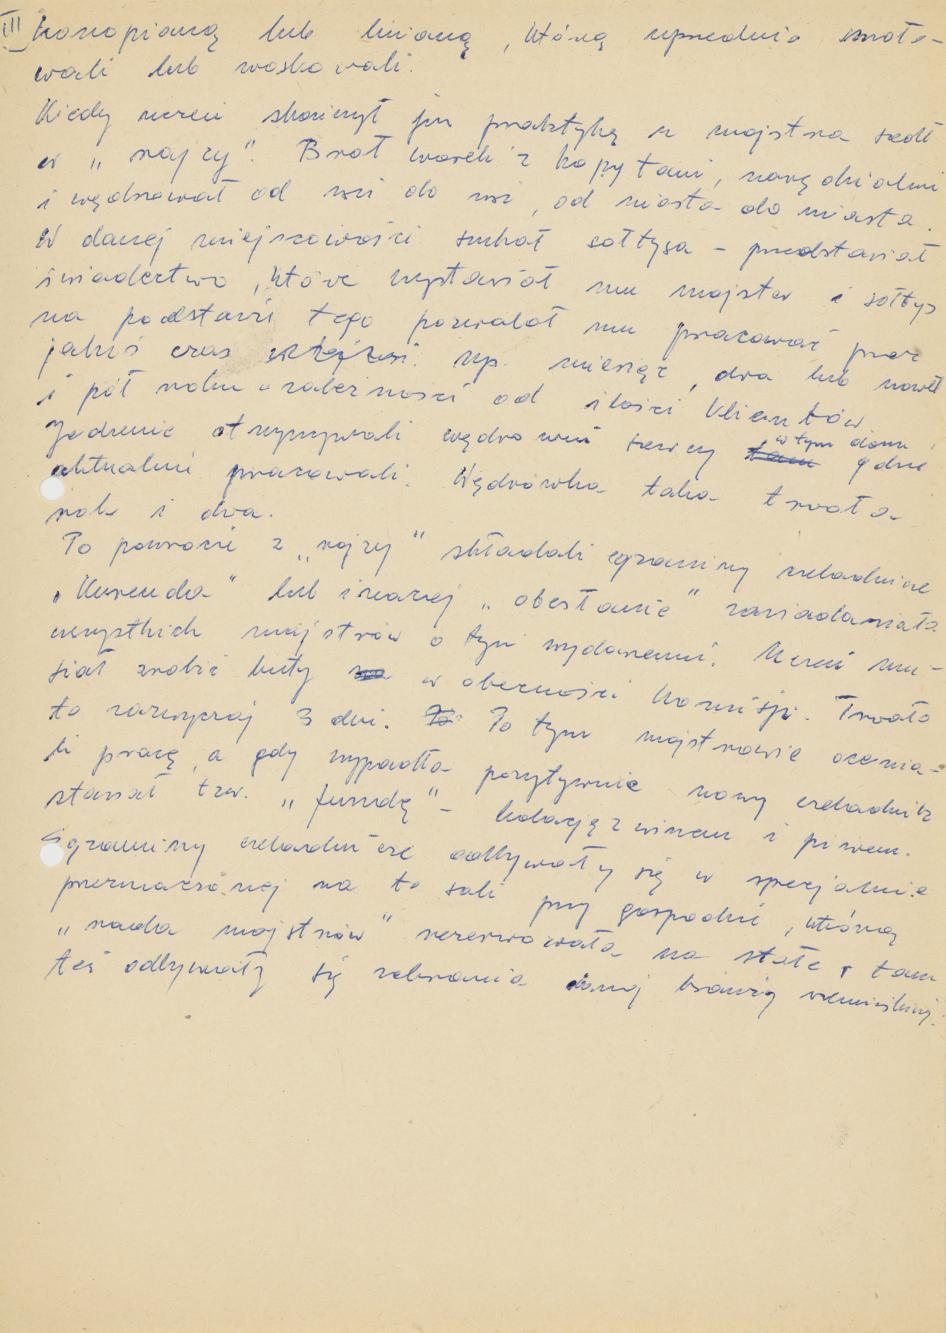 III konopianą lub lnianą, którą uprzednio smoło-
wali lub woskowali.
Kiedy uczeń skończył już praktykę u majstra szedł
w „rajzy". Brał worek z kopytami, narzędziami
i wędrował od wsi do wsi, od miasta do miasta.
W danej miejscowości szukał sołtysa – przedstawiał
świadectwo, które wystawiał mu majster i sołtys
na podstawie tego pozwalał mu pracować przez
jakiś czas np. miesiąc, dwa lub nawet
i pół roku w zależności od ilości klientów.
Jedzenie otrzymywali wędrowni szewcy w tym domu, gdzie
aktualnie pracowali. Wędrówka taka trwała
rok i dwa.
Po powrocie z „rajzy" składali egzaminy czeladnicze
„Kurenda" lub inaczej „obesłanie" zawiadamiała
wszystkich majstrów o tym wydarzeniu. Uczeń mu-
siał zrobić buty w obecności komisji. Trwało
to zazwyczaj 3 dni. Po tym majstrowie ocenia-
li pracę, a gdy wypadła pozytywnie nowy czeladnik
stawiał tzw. „fundę" – kolację z winem i piwem.
Egzaminy czeladnicze odbywały się w specjalnie
przeznaczonej na to sali przy gospodzie, którą
„rada majstrów" rezerwowała na stałe, tam
też odbywały się zebrania danej branży rzemieślniczej.